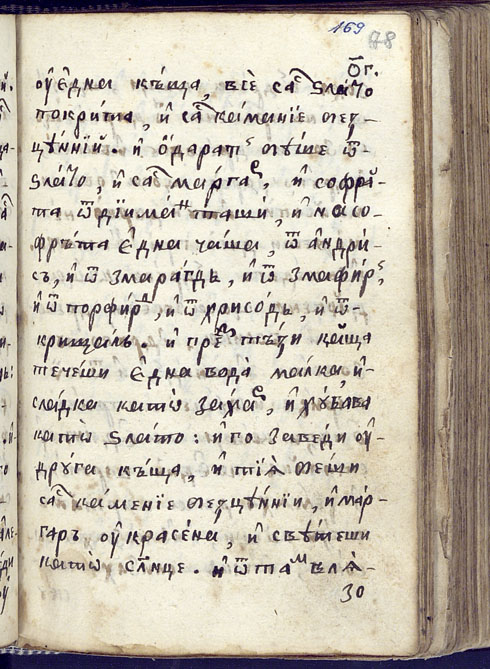 169
78
ѻ҃г.
ᲂу҆ є҆дна къ́ща, всѐ саⷭ҇ ѕла́то
покри́та, и҆ саⷭ҇ ка́манїе безъ-
цѣ́ннїи. и҆ ѻ҆даратъ бѣ́ше ѿ
ѕла́то, и҆ саⷭ҇ марга, и҆ софра̀-
та ѿ дїима́нташи, и҆ на со-
фрѣта є҆дна ча́ша, ѿ а҆ндри-
съ, и҆ ѿ змара́гдъ, и҆ ѿ змафи́р,
и҆ ѿ порфи́р, и҆ ѿ хрисо́дъ, и҆ ѿ-
крищаль. и҆ преⷣ тѣ́зи ка́ща
тече́ши є҆дна вода̀ малка, и҆-
сла́дка като̀ за́хаⷬ, и҆ хꙋ́бава
като̀ ѕла́то: и҆ го заве́ди ᲂу҆-
дрꙋ́га къ́ща, и҆ тїѧ̀ бе́ши
саⷭ҇ ка́менїе безцѣ́ннїи, и҆ ма́р-
гаръ ᲂу҆красе́на, и҆ свѣ́теши
като̀ сл҃нце. и҆ ѿтаⷨ влѧ́-
30